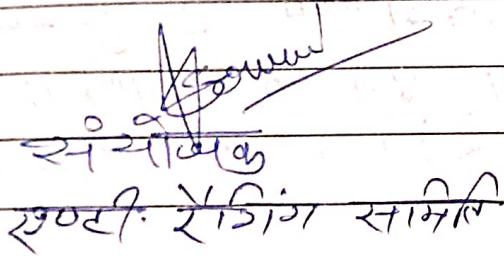 संयोजक
एण्टी: रैगिंग समिति